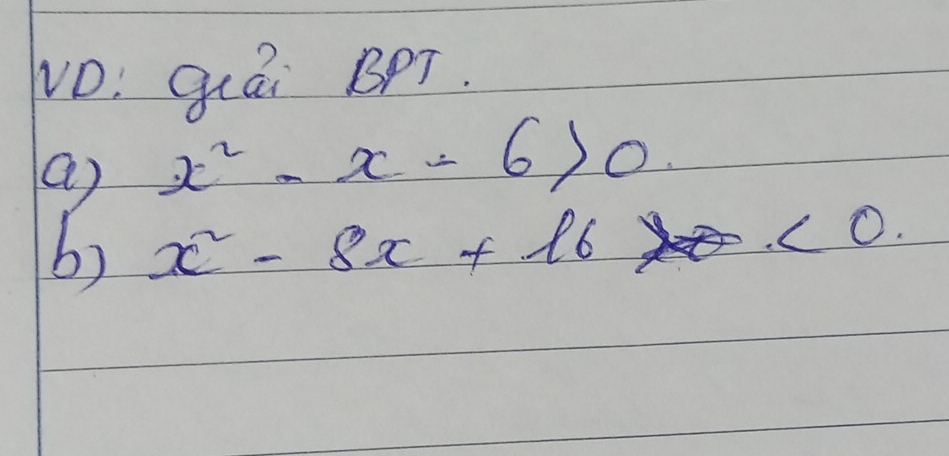 VD: Giải BPT.
a) x² - x - 6 > 0.
b) x² - 8x + 16 < 0.